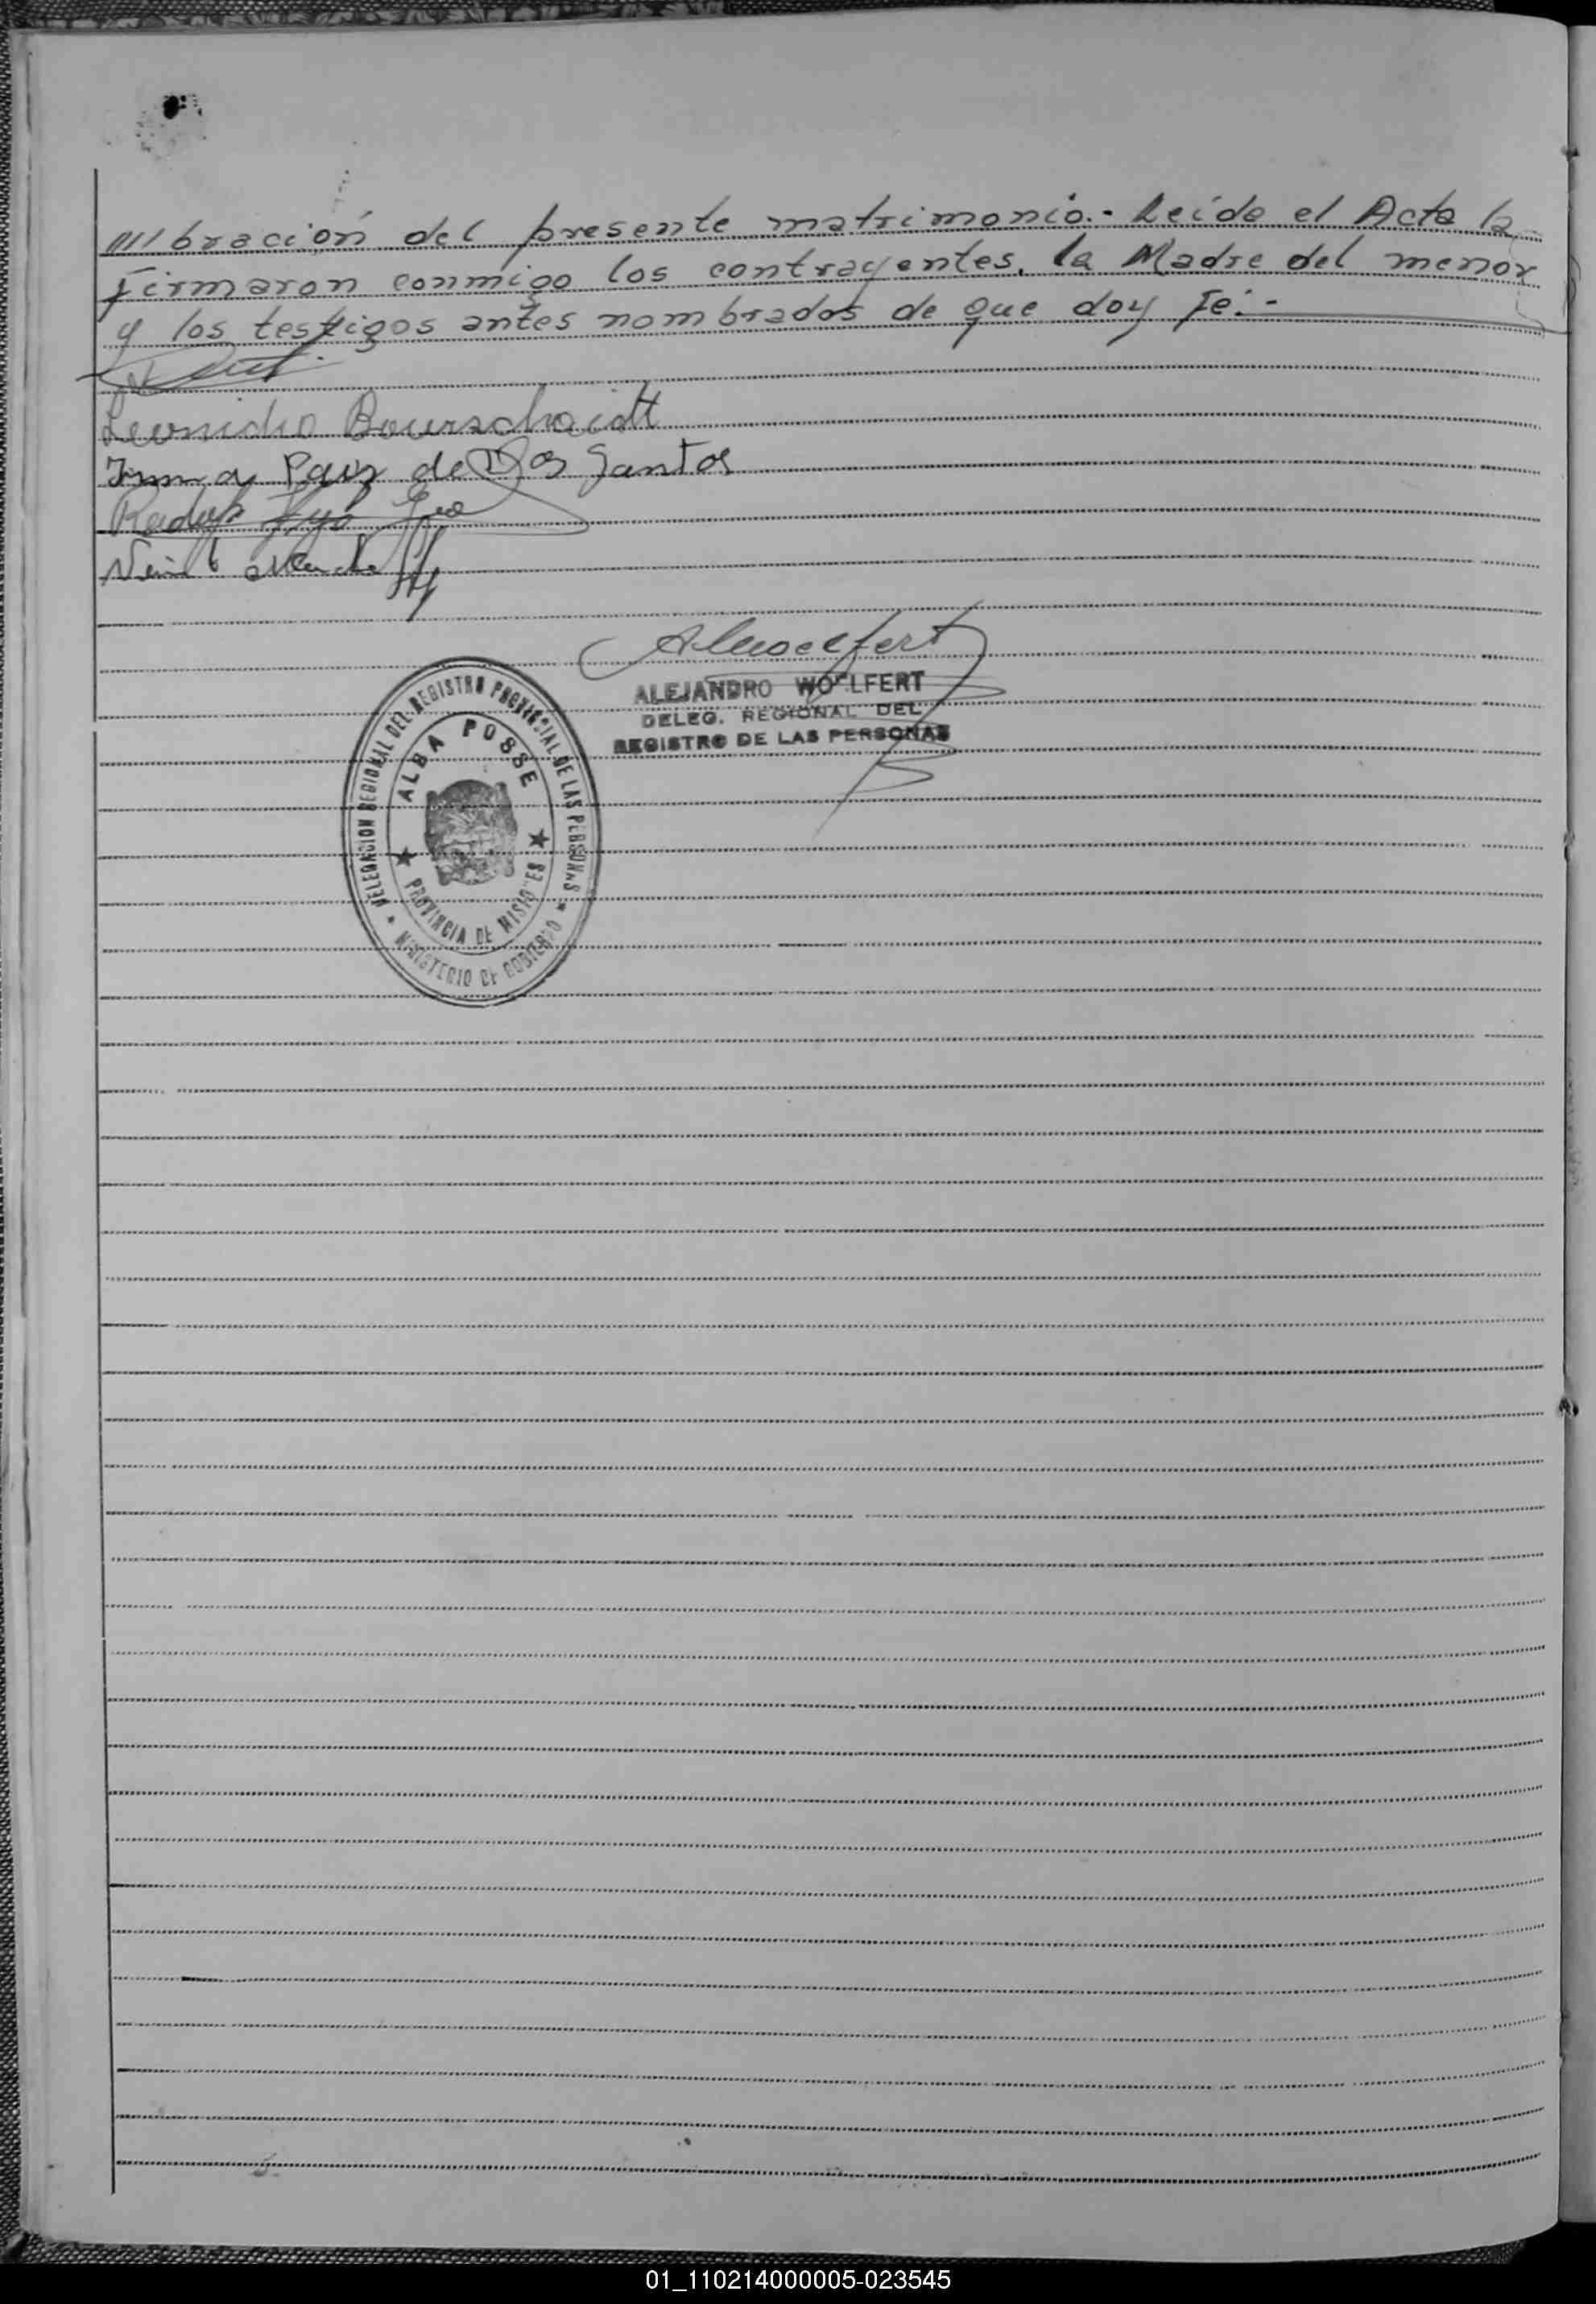 ///bración del presente matrimonio.- Leída el Acta la
firmaron conmigo los contrayentes, la Madre del menor
y los testigos antes nombrados de que doy fe.-
Leonidio Bourscheidt
Irma Paiz de Dos Santos
AWoelfert
ALEJANDRO WOELFERT
DELEG. REGIONAL DEL
REGISTRO DE LAS PERSONAS
DELEGACION REGIONAL DEL REGISTRO PROVINCIAL DE LAS PERSONAS
ALBA POSSE
PROVINCIA DE MISIONES
* MINISTERIO DE GOBIERNO *
01_110214000005-023545